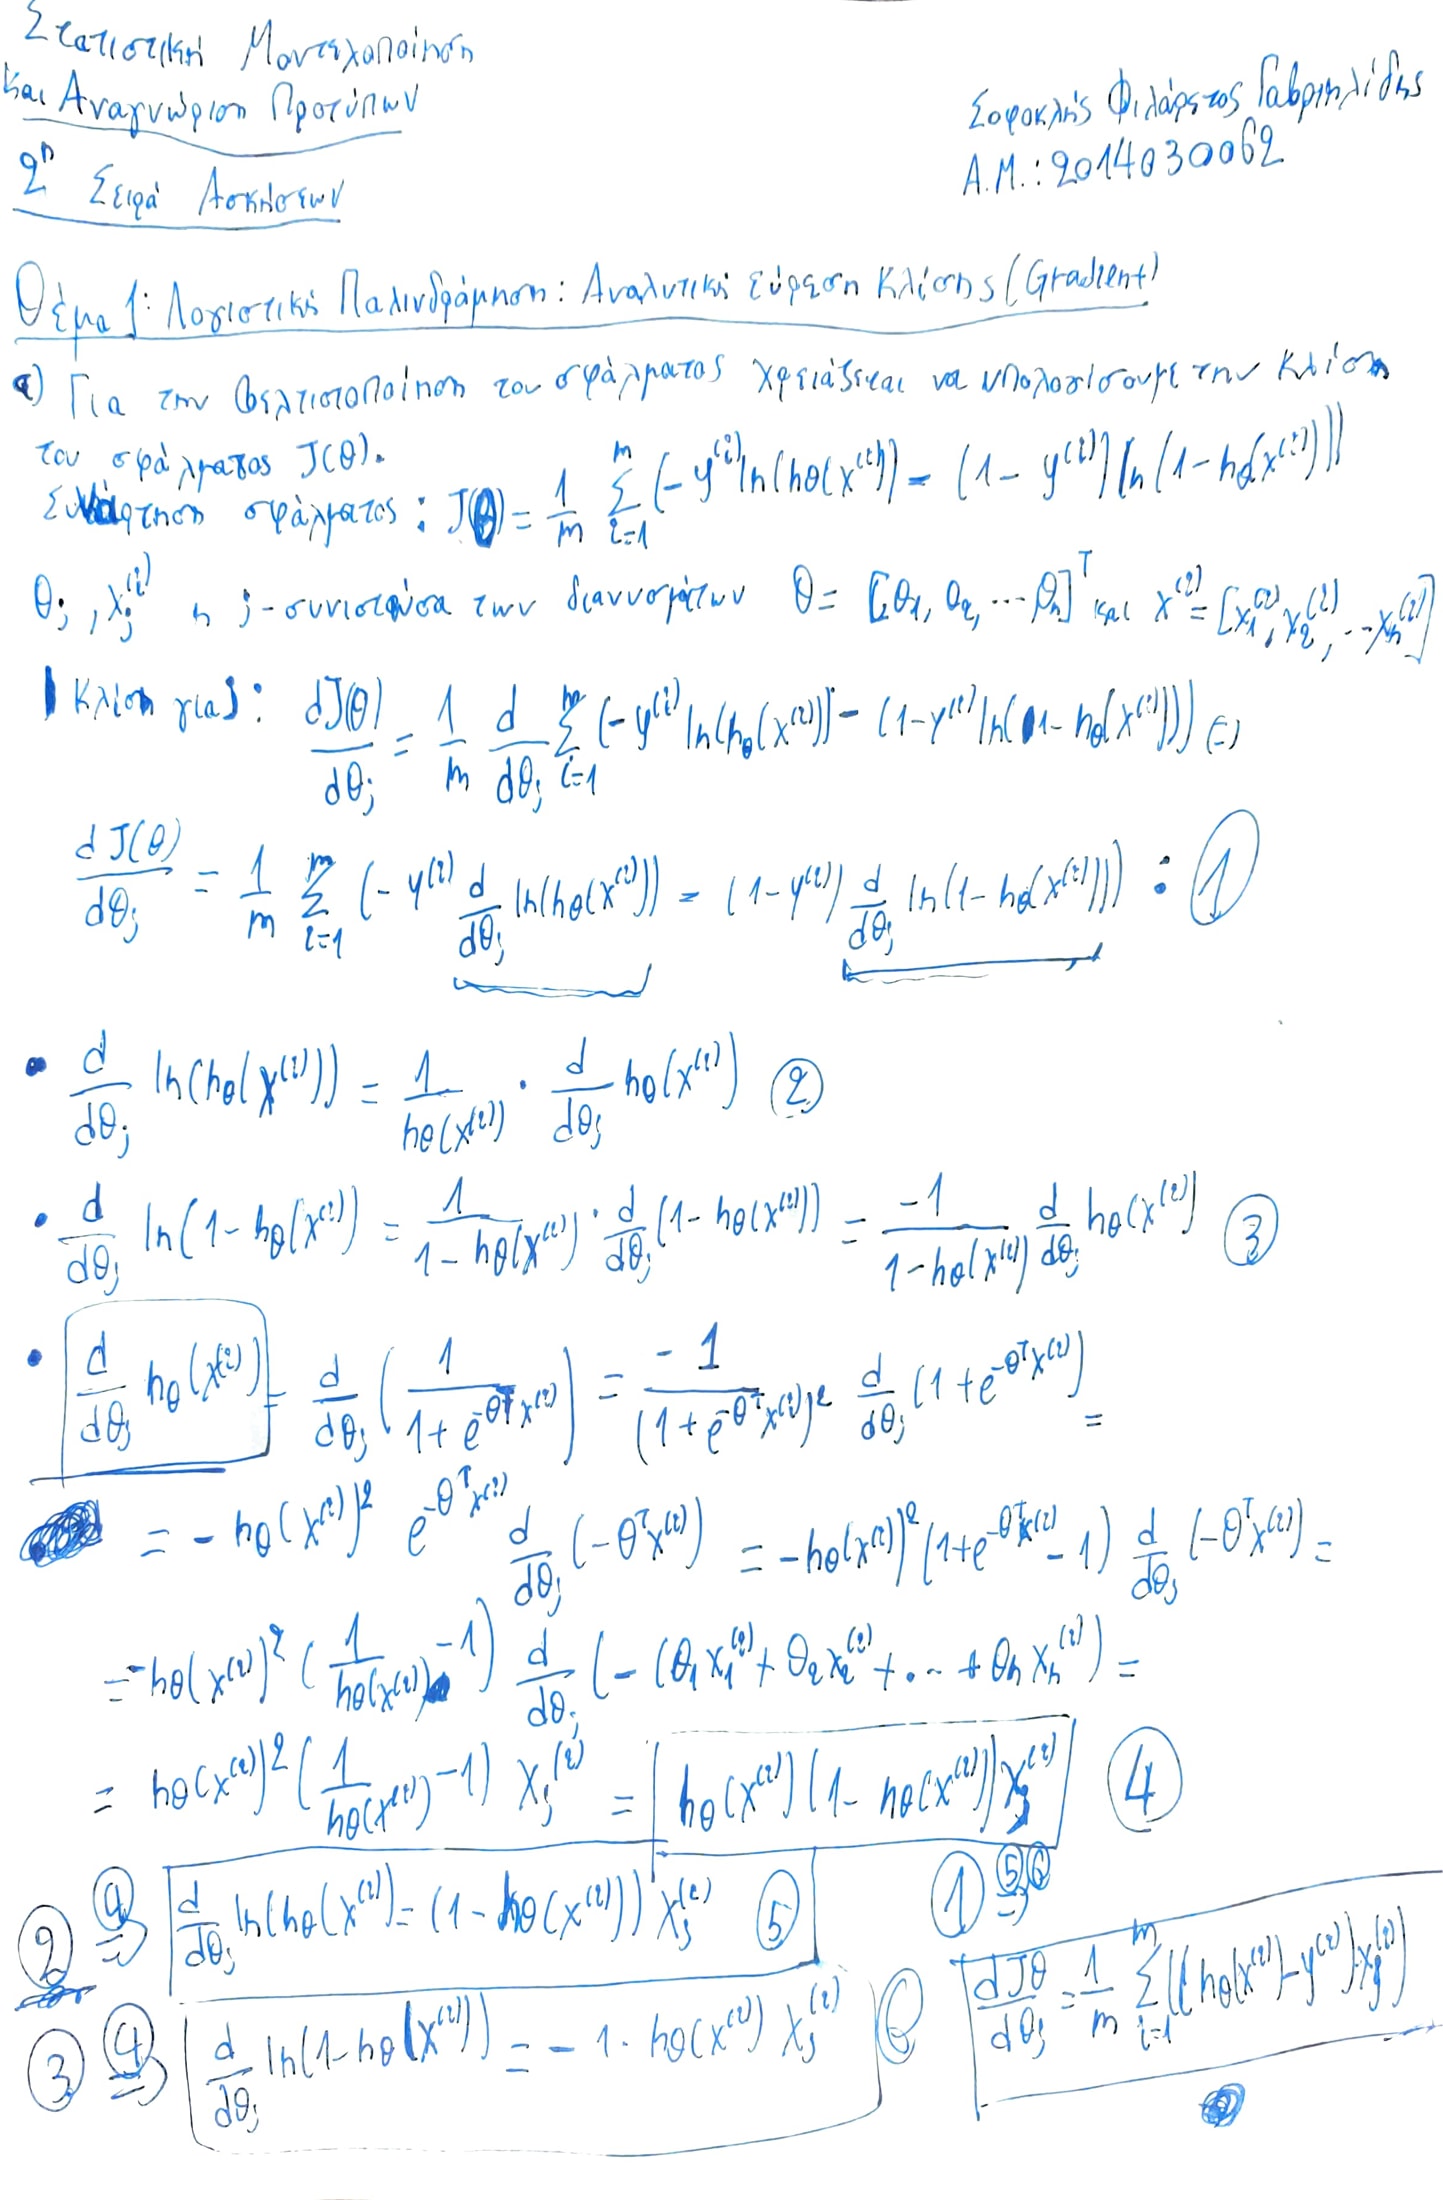 Στατιστική Μοντελοποίηση
και Αναγνώριση Προτύπων
2η Σειρά Ασκήσεων
Σοφοκλής Φιλάρετος Γαβριηλίδης
Α.Μ.: 2014030062
Θέμα 1: Λογιστική Παλινδρόμηση: Αναλυτική εύρεση κλίσης (Gradient)
α) Για την βελτιστοποίηση του σφάλματος χρειάζεται να υπολογίσουμε την κλίση
του σφάλματος J(θ).
Συνάρτηση σφάλματος: J(θ) = 1/m Σ_{i=1}^{m} (-y^(i) ln(hθ(x^(i))) - (1 - y^(i)) ln(1 - hθ(x^(i))))
θj, xj^(i) η j-συνιστώσα των διανυσμάτων θ = [θ1, θ2, ... θn]^T και x^(i) = [x1^(i), x2^(i), ... xn^(i)]
Κλίση για J: dJ(θ)/dθj = 1/m d/dθj Σ_{i=1}^{m} (-y^(i) ln(hθ(x^(i))) - (1-y^(i) ln(1-hθ(x^(i)))) (=)
dJ(θ)/dθj = 1/m Σ_{i=1}^{m} (-y^(i) d/dθj ln(hθ(x^(i))) - (1-y^(i)) d/dθj ln(1-hθ(x^(i)))) : ①
• d/dθj ln(hθ(x^(i))) = 1/hθ(x^(i)) · d/dθj hθ(x^(i)) ②
• d/dθj ln(1-hθ(x^(i))) = 1/(1-hθ(x^(i))) · d/dθj (1-hθ(x^(i))) = -1/(1-hθ(x^(i))) d/dθj hθ(x^(i)) ③
• d/dθj hθ(x^(i)) = d/dθj (1/(1+e^(-θ^T x^(i)))) = -1/(1+e^(-θ^T x^(i)))^2 d/dθj (1+e^(-θ^T x^(i))) =
= -hθ(x^(i))^2 e^(-θ^T x^(i)) d/dθj (-θ^T x^(i)) = -hθ(x^(i))^2 (1+e^(-θ^T x^(i)) - 1) d/dθj (-θ^T x^(i)) =
= -hθ(x^(i))^2 (1/hθ(x^(i)) - 1) d/dθj (-(θ1 x1^(i) + θ2 x2^(i) + ... + θn xn^(i)) =
= hθ(x^(i))^2 (1/hθ(x^(i)) - 1) xj^(i) = hθ(x^(i)) (1-hθ(x^(i))) xj^(i) ④
② ④⇒ d/dθj ln(hθ(x^(i)) = (1-hθ(x^(i))) xj^(i) ⑤
③ ④⇒ d/dθj ln(1-hθ(x^(i))) = -1·hθ(x^(i)) xj^(i) ⑥
① ⑤⑥⇒
dJθ/dθj = 1/m Σ_{i=1}^{m} ((hθ(x^(i)) - y^(i)) · xj^(i))